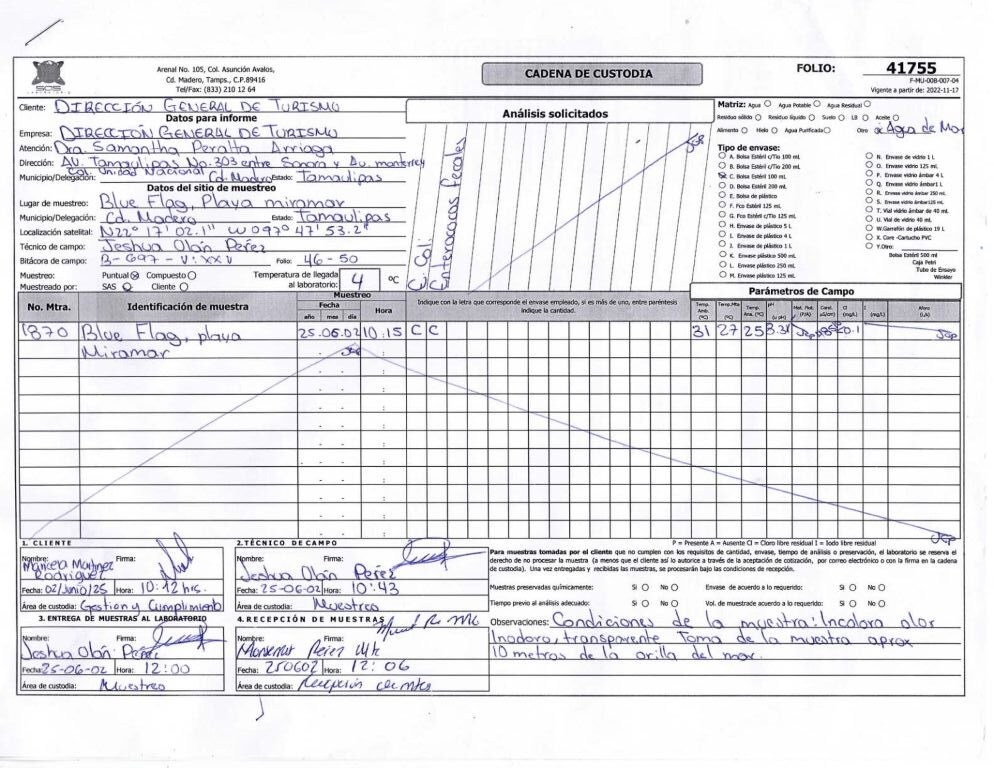 SOS
Arenal No. 105, Col. Asunción Avalos,
Cd. Madero, Tamps., C.P.89416
Tel/Fax: (833) 210 12 64
CADENA DE CUSTODIA
FOLIO: 41755
F-MU-00B-007-04
Vigente a partir de: 2022-11-17
Cliente: DIRECCIÓN GENERAL DE TURISMO
Datos para informe
Empresa: DIRECCIÓN GENERAL DE TURISMO
Atención: Dra. Samantha Peralta Arriaga
Dirección: AV. Tamaulipas No. 303 entre Sonora y Av. monterrey
Col. Unidad Nacional
Municipio/Delegación: Cd. Madero Estado: Tamaulipas
Datos del sitio de muestreo
Lugar de muestreo: Blue Flag, Playa miramar
Municipio/Delegación: Cd. Madero Estado: Tamaulipas
Localización satelital: N22° 17' 02.1" W 097° 47' 53.2"
Técnico de campo: Jeshua Olán Pérez
Bitácora de campo: B-697-V:XXV Folio: 46-50
Muestreo: Puntual Compuesto
Muestreado por: SAS Cliente
Temperatura de llegada al laboratorio: 4 °C
Análisis solicitados
E. Coli
Enterococos fecales
Matriz: Agua Agua Potable Agua Residual
Residuo sólido Residuo líquido Suelo LB Aceite
Alimento Hielo Agua Purificada Otro Agua de Mar
Tipo de envase:
A. Bolsa Estéril c/Tio 100 mL
B. Bolsa Estéril c/Tio 200 mL
C. Bolsa Estéril 100 mL
D. Bolsa Estéril 200 mL
E. Bolsa de plástico
F. Fco Estéril 125 mL
G. Fco Estéril c/Tio 125 mL
H. Envase de plástico 5 L
I. Envase de plástico 4 L
J. Envase de plástico 1 L
K. Envase plástico 500 mL
L. Envase plástico 250 mL
M. Envase plástico 125 mL
N. Envase de vidrio 1 L
O. Envase vidrio 125 mL
P. Envase vidrio ámbar 4 L
Q. Envase vidrio ámbar1 L
R. Envase vidrio ámbar 250 mL
S. Envase vidrio ámbar125 mL
T. Vial vidrio ámbar de 40 mL
U. Vial de vidrio 40 mL
W.Garrafón de plástico 19 L
X. Core -Cartucho PVC
Y.Otro:
Bolsa Estéril 500 ml
Caja Petri
Tubo de Ensayo
Winkler
No. Mtra. Identificación de muestra Muestreo
Fecha Hora
año mes día
Indique con la letra que corresponde el envase empleado, si es más de uno, entre paréntesis
indique la cantidad.
Parámetros de Campo
Temp. Amb. (°C) Temp.Mta (°C) Temp. Ana. (°C) pH (u pH) Mat. Flot. (P/A) Cond. (µS/cm) Cl (mg/L) I (mg/L) Aforo (L/s)
1870 Blue Flag, playa 25.06.02 10:15 C C 31 27 25
Miramar
P = Presente A = Ausente Cl = Cloro libre residual I = Iodo libre residual
1. CLIENTE
Nombre: Firma:
Maricela Martinez
Rodríguez
Fecha: 02/Junio/25 Hora: 10:12 hrs.
Área de custodia: Gestion y Cumplimiento
2.TÉCNICO DE CAMPO
Nombre: Firma:
Jeshua Olán Pérez
Fecha: 25-06-02 Hora: 10:43
Área de custodia: Muestreo
3. ENTREGA DE MUESTRAS AL LABORATORIO
Nombre: Firma:
Jeshua Olán Pérez
Fecha: 25-06-02 Hora: 12:00
Área de custodia: Muestreo
4.RECEPCIÓN DE MUESTRAS
Nombre: Firma:
Fecha: 250602 Hora: 12:06
Área de custodia: Recepción de mtras
Para muestras tomadas por el cliente que no cumplen con los requisitos de cantidad, envase, tiempo de análisis o preservación, el laboratorio se reserva el
derecho de no procesar la muestra (a menos que el cliente así lo autorice a través de la aceptación de cotización, por correo electrónico o con la firma en la cadena
de custodia). Una vez entregadas y recibidas las muestras, se procesarán bajo las condiciones de recepción.
Muestras preservadas químicamente: Si No Envase de acuerdo a lo requerido: Si No
Tiempo previo al análisis adecuado: Si No Vol. de muestrade acuerdo a lo requerido: Si No
Observaciones: Condiciones de la muestra: Incolora olor
Inodoro, transparente Toma de la muestra aprox
10 metros de la orilla del mar.